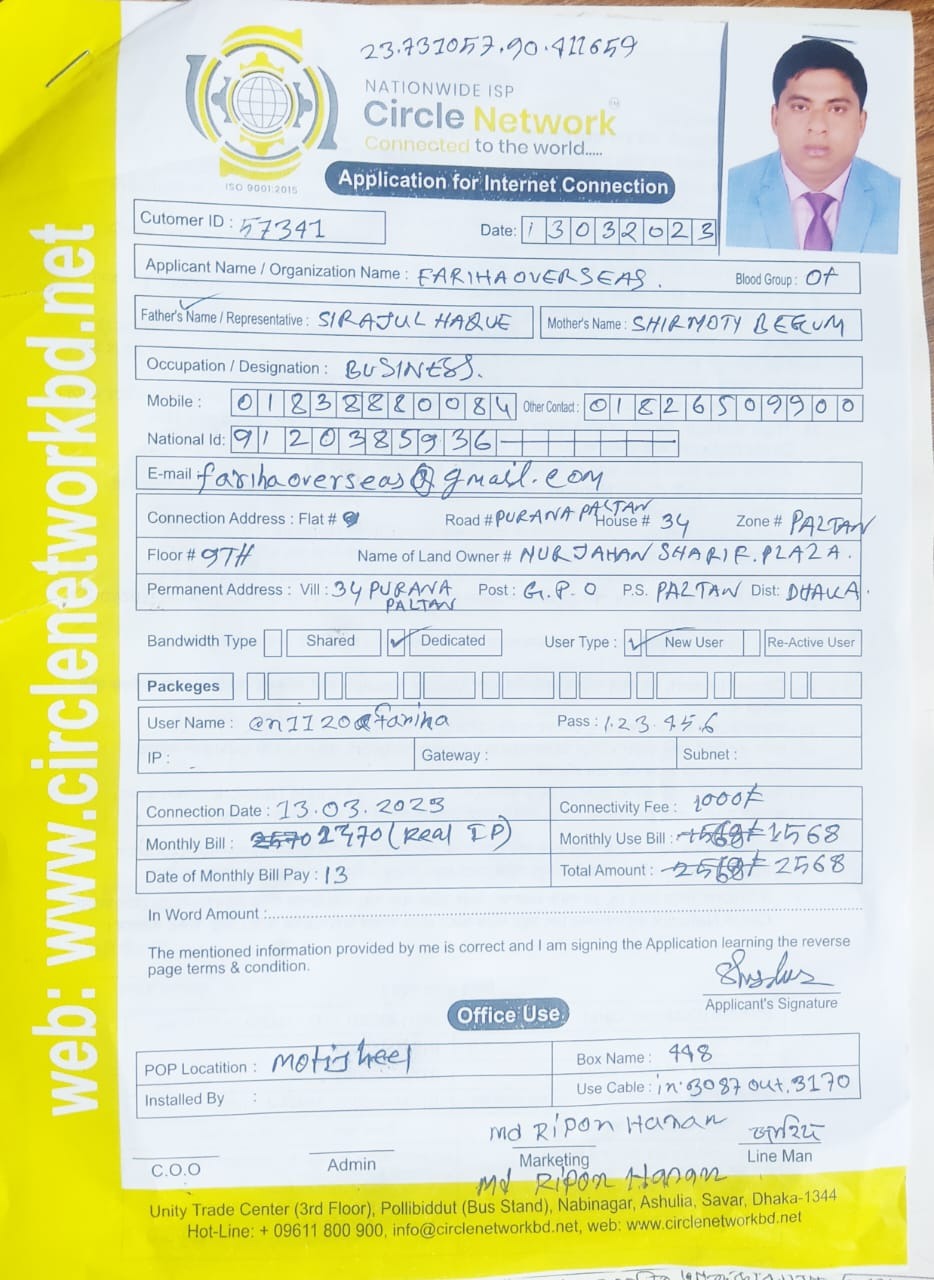 23.731057,90.411659
NATIONWIDE ISP
Circle Network
Connected to the world.....
ISO 9001:2015
Application for Internet Connection
Cutomer ID : 57341
Date: 13032023
Applicant Name / Organization Name : FARIHA OVERSEAS.
Blood Group : O+
Father's Name / Representative : SIRAJUL HAQUE
Mother's Name : SHIRMOTY BEGUM
Occupation / Designation : BUSINESS.
Mobile : 01838880084 Other Contact : 01826509900
National Id: 9120385936
E-mail : farihaoverseas@gmail.com
Connection Address : Flat # Road # PURANA PALTAN House # 34 Zone # PALTAN
Floor # 9TH Name of Land Owner # NURJAHAN SHARIF. PLAZA.
Permanent Address : Vill : 34 PURANA PALTAN Post : G.P.O P.S. PALTAN Dist: DHAKA.
Bandwidth Type Shared ✓ Dedicated User Type : ✓ New User Re-Active User
Packeges
User Name : Pass : 1.2.3.4.5.6
IP : Gateway : Subnet :
Connection Date : 13.03.2023 Connectivity Fee : 1000/-
Monthly Bill : (Real IP) Monthly Use Bill : 1568
Date of Monthly Bill Pay : 13 Total Amount : 2568
In Word Amount :
The mentioned information provided by me is correct and I am signing the Application learning the reverse
page terms & condition.
Applicant's Signature
Office Use
POP Locatition : Motijheel Box Name : 448
Installed By : Use Cable : in:3087 out.3170
Md Ripon Hanan
C.O.O Admin Marketing Line Man
Md Ripon Hanan
Unity Trade Center (3rd Floor), Pollibiddut (Bus Stand), Nabinagar, Ashulia, Savar, Dhaka-1344
Hot-Line: + 09611 800 900, info@circlenetworkbd.net, web: www.circlenetworkbd.net
web: www.circlenetworkbd.net